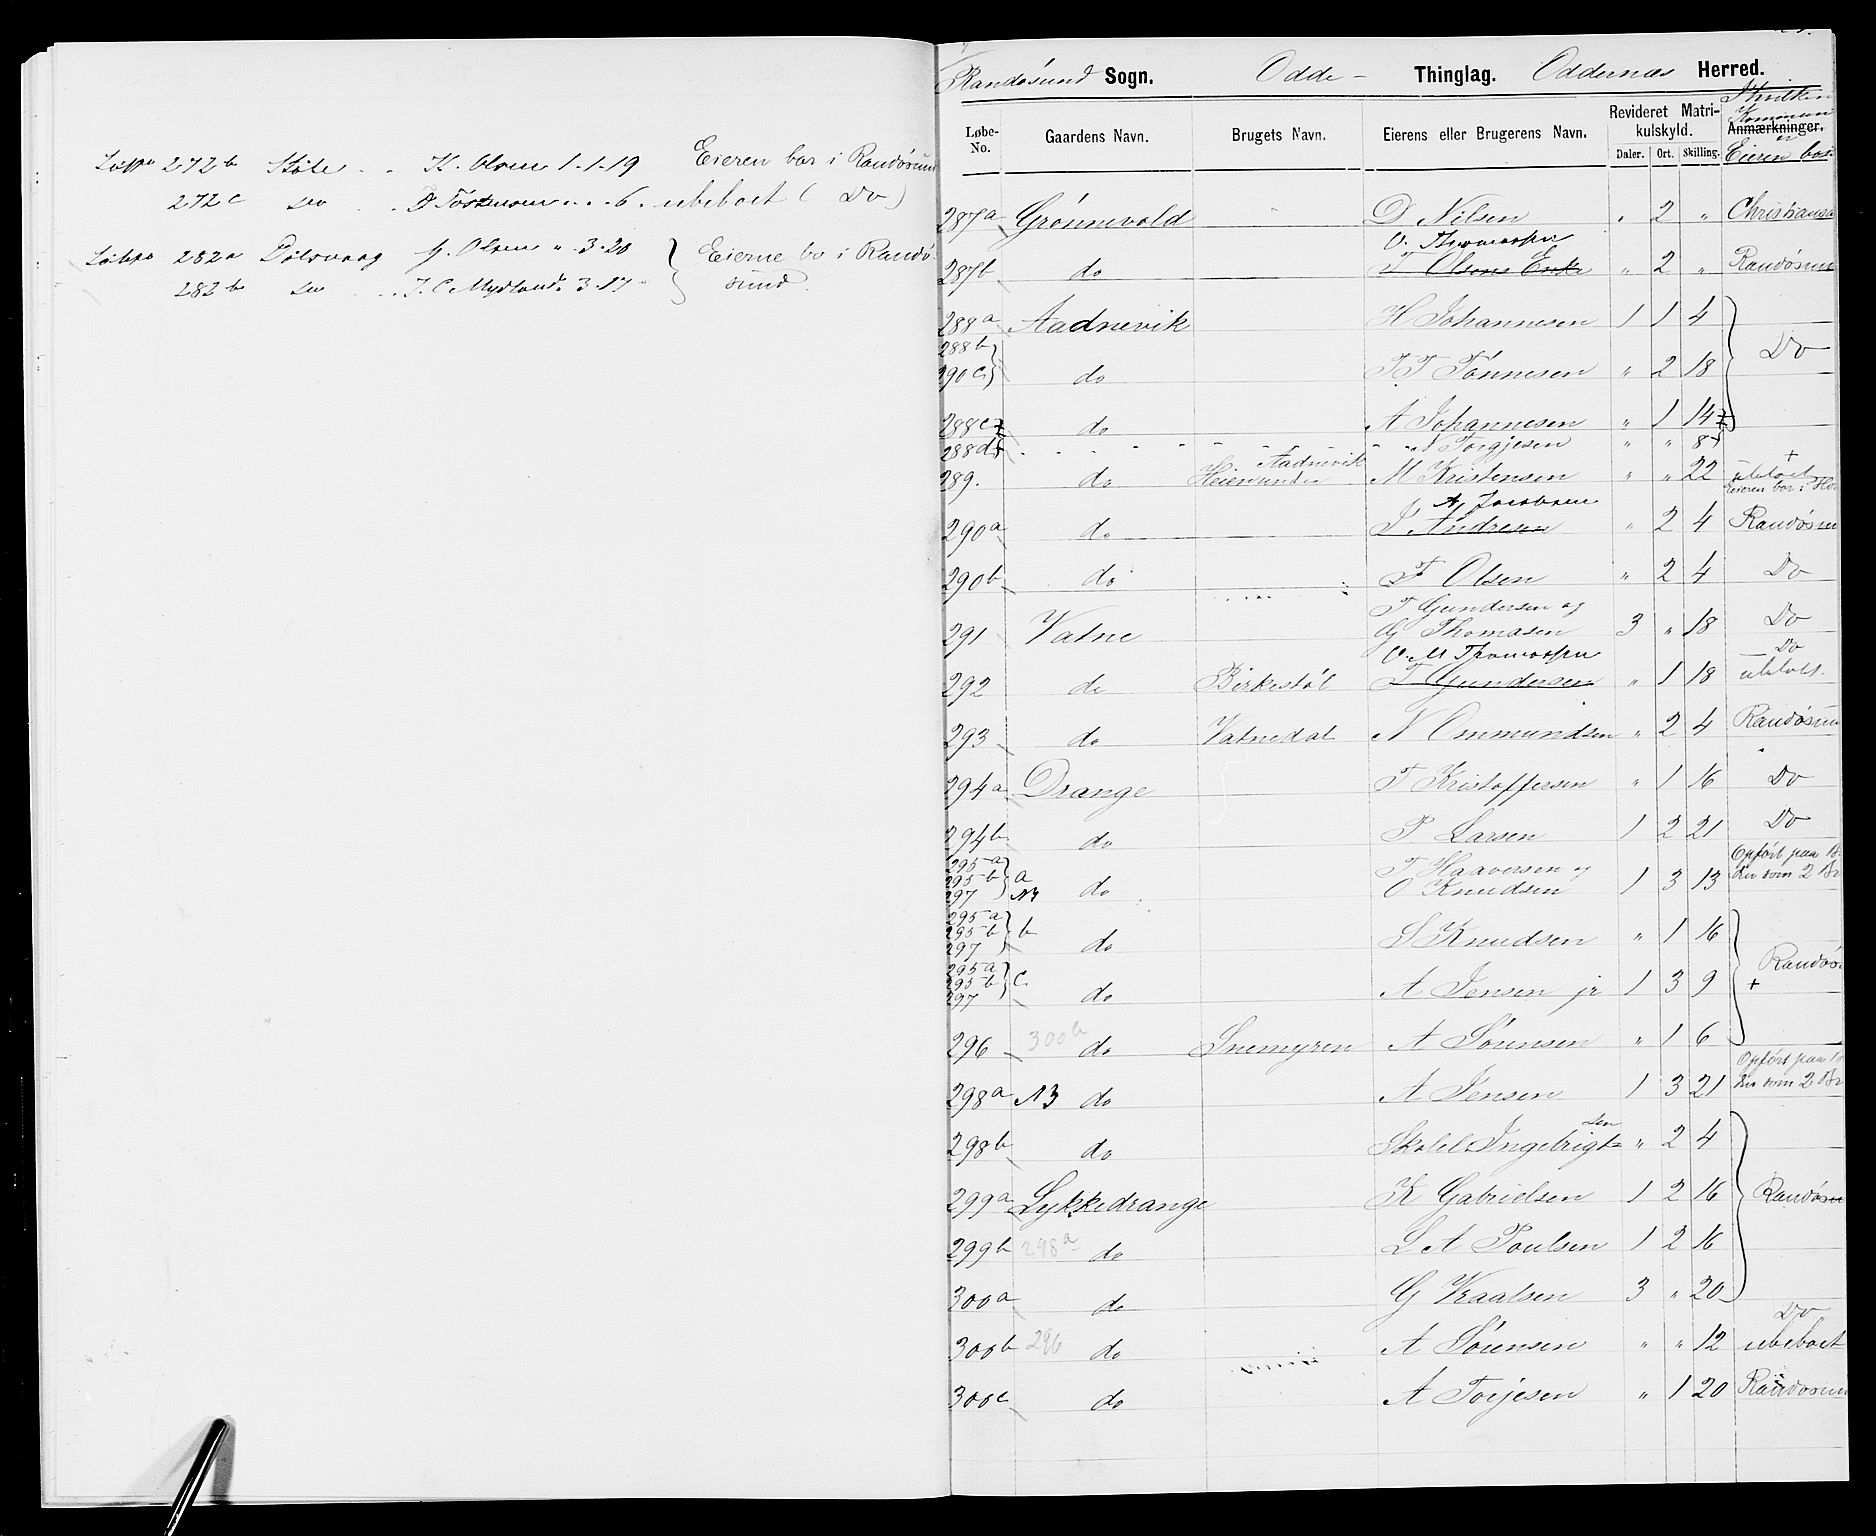 Løbno 272b Støle . . K. Olsen 1-1-19 Eieren bor i Randøsund
272c do . . T Torkensen . . 6. ubeboet (Do)
Løbno 282a Dølsvaag G. Olsen " 3-20 } Eierne bo i Randø-
282b do . . J. C. Mydland " 3-17 sund.
Randøsund Sogn. Odde- Thinglag. Oddernæs Herred.
Løbe-No. Gaardens Navn. Brugets Navn. Eierens eller Brugerens Navn. Revideret Matrikulskyld. Daler. Ort. Skilling. Anmærkninger. I hvilken Kommun er Eieren bos.
287a Grønnevold D Nilsen " 2 " Christiansa
O. Thomassen
287b do T Olsens Enke " 2 " Randøsun
288a Aadnevik H Johannesen 1 1 4
288b
290c do T T Tønnesen " 2 18 Do
288c do A Johannesen " 1 14
288d . . . . N Torgjesen " " 8
289. do Aadnevik Heiersundet M Kristensen " " 22 ubeboet Eieren bor i
A Jacobsen
290a do J Andresen " 2 4 Randøsun
290b do T Olsen " 2 4 Do
291 Vatne T Gundersen og
G Thomasen 3 " 18 Do
O. M Thomassen Do
292 do Birkestøl T Gundersen " 1 18 ubeboet.
293 do Vatnedal N Ommundsen " 2 4 Randøsun
294a Drange T Kristoffersen " 1 16 Do
294b do P Larsen 1 2 21 Do
295a
295b } a
297 NB do T Haaversen og
O Knudsen 1 3 13 Opført paa
som 2 Br
295a
295b } b
297 do S Knudsen " 1 16
295a
295b } c
297 do A Jensen jr 1 3 9 Randøs
296 300b do Snemyren A Sørensen " 1 6
298a NB do A Jensen 1 3 21 Opført paa
som 2 Br
298b do Skolel Ingebrigtsen " 2 4
299a Lykkedrange K Gabrielsen 1 2 16 Randøsun
299b 298a do L A Poulsen 1 2 16
300a do G Kaalsen 3 " 20
300b 296 do A Sørensen " " 12 Do ubeboet
300c do A Torjesen " 1 20 Randøsun